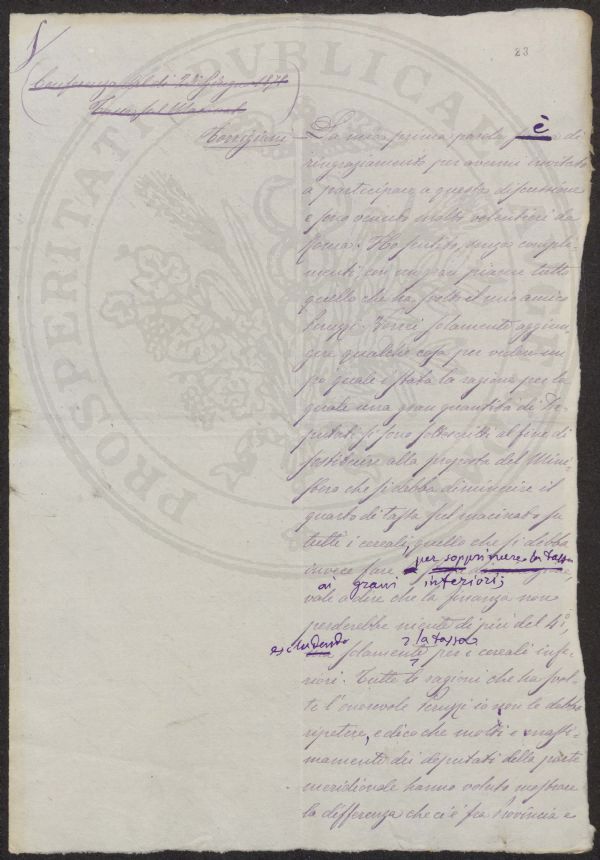 23
Conferenza del dì 23 Giugno 1878
Tassa sul Macinato
Torrigiani — La mia prima parola è di
ringraziamento per avermi invitato
a partecipare a questa discussione
e sono venuto molto volentieri da
Roma. Ho sentito, senza compli-
menti, con un gran piacere tutto
quello che ha svolto il mio amico
Peruzzi. Vorrei solamente aggiun-
gere qualche cosa per vedere un
pò quale è stata la ragione per la
quale una gran quantità di De-
putati si sono sottoscritti al fine di
sostituire alla proposta del Mini-
stero che si debba diminuire il
quarto di tassa sul macinato su
tutti i cereali, quello che si debba
invece fare per sopprimere la tassa
ai grani inferiori;
vale a dire che la finanza non
perderebbe niente di più del 4º,
escludendo la tassa
solamente per i cereali infe-
riori. Tutte le ragioni che ha svol-
te l'onorevole Peruzzi io non le debbo
ripetere, e dico che molti e massi-
mamente dei deputati della parte
meridionale hanno voluto mostrare
la differenza che ci è fra Provincia e